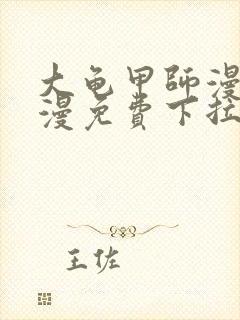 大龟甲師漫
漫免費下拉
王佐